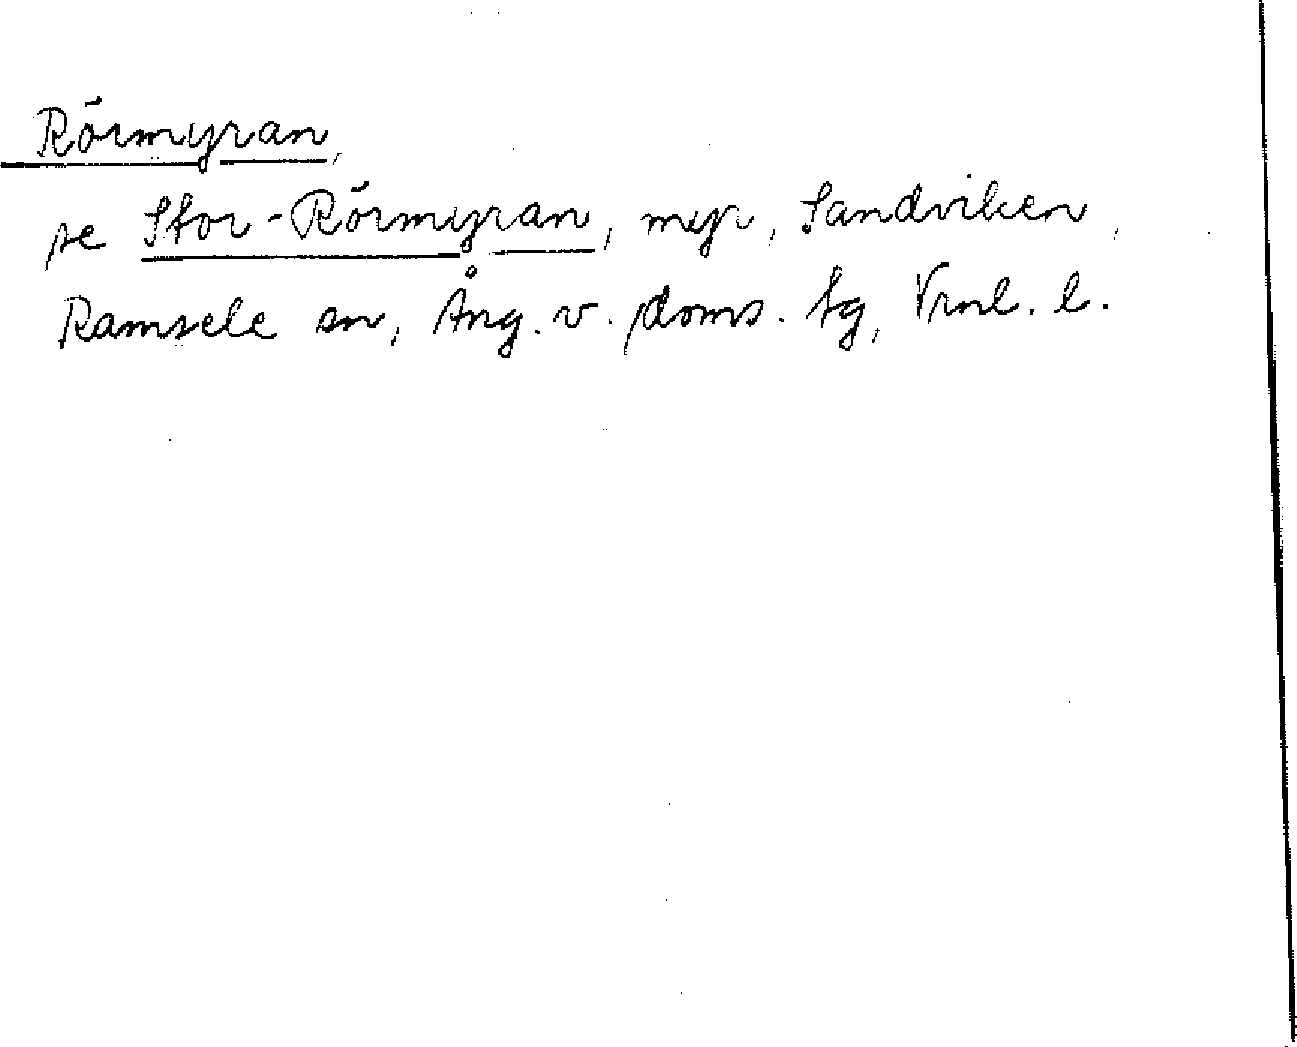 Rörmyran,
se Stor-Rörmyran, myr, Sandviken,
Ramsele sn, Ång. v. doms. tg, Vrnl. l.